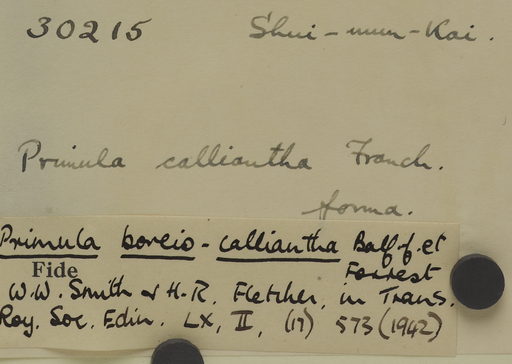 30215 Shui-mun-Kai.
Primula calliantha Franch.
forma.
Primula boreio-calliantha Balf.f. et
Forrest
Fide
W.W. Smith & H.R. Fletcher, in Trans.
Roy. Soc. Edin. LX, II, (17) 573 (1942)